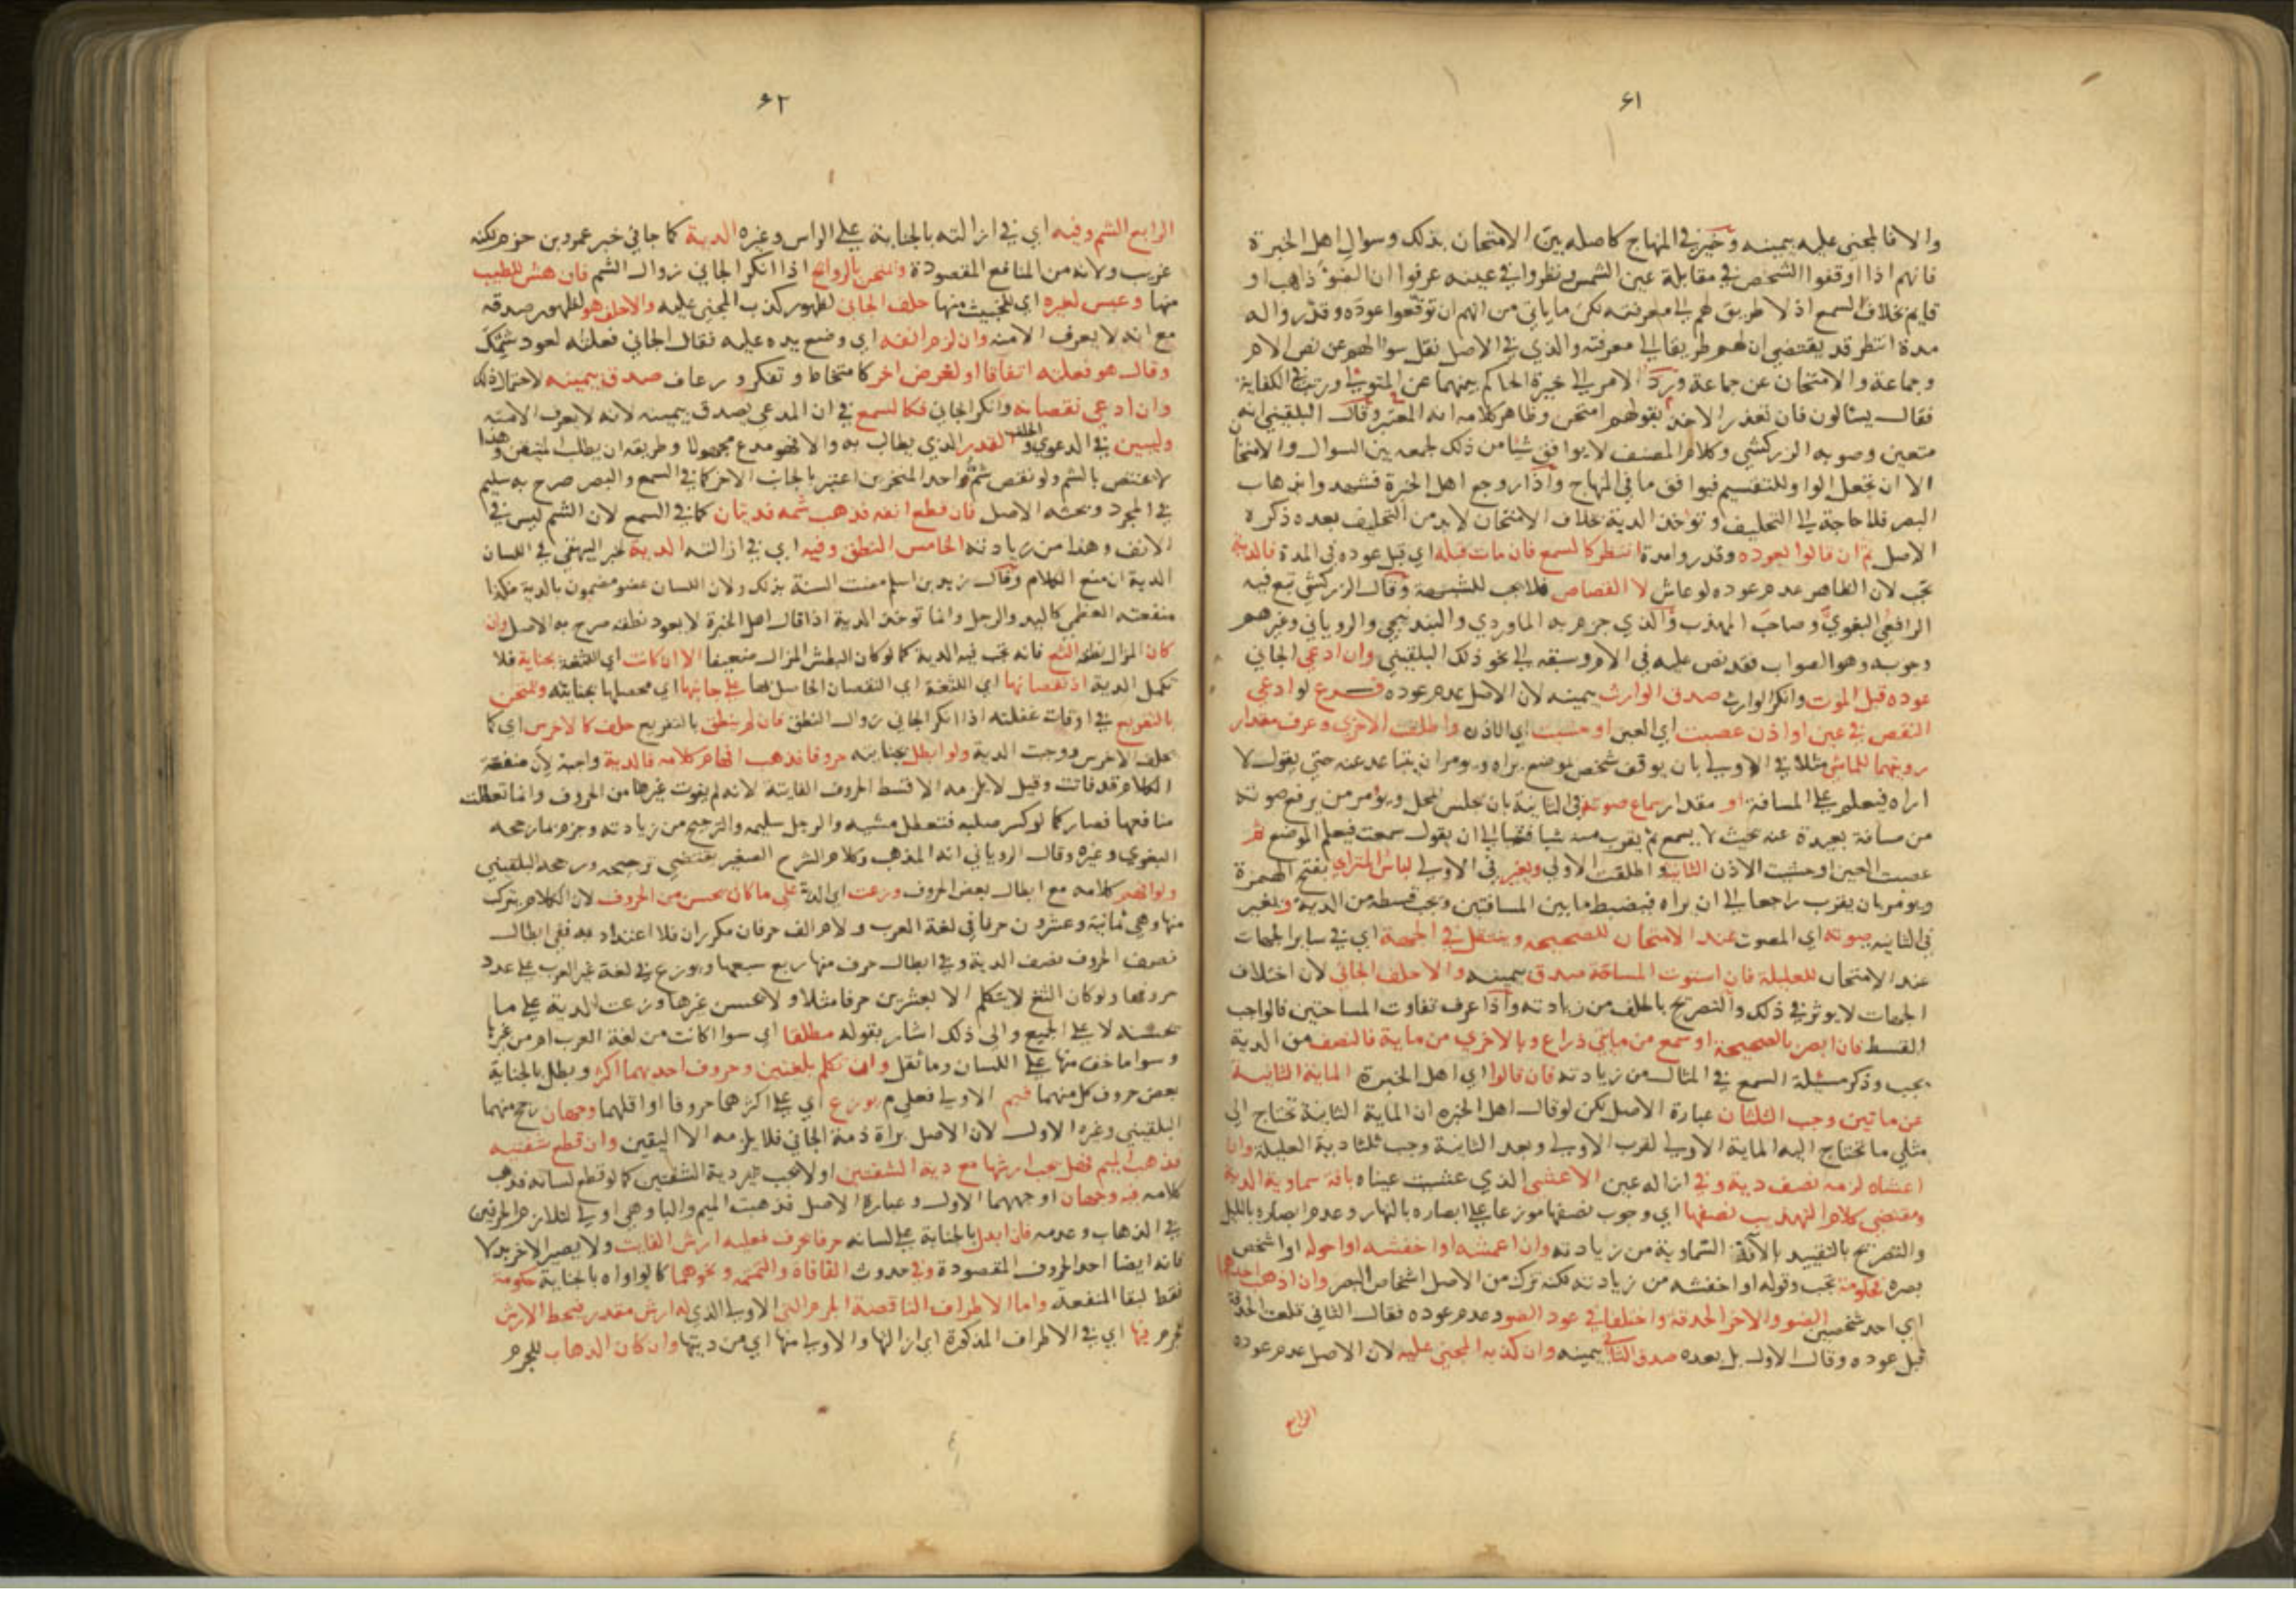 ٦١
والا فالمجني عليه بيمينه وخير في المنهاج كاصله بين الامتحان بذلك وسوال اهل الخبرة
فانهم اذا اوقفوا الشخص في مقابلة عين الشمس ونظروا في عينه عرفوا ان الضو ذاهب او
قايم بخلاف السمع اذ لا طريق لهم الى معرفته لكن ما ياتي من انهم ان توقعوا عوده وقدروا له
مدة انتظر قد يقتضي ان لهم طريقا الى معرفته والذي في الاصل نقل سوالهم عن نص الام
وجماعة والامتحان عن جماعة ورد الامر الى خيرة الحاكم بينهما عن المتولي ورتب في الكفاية
فقال يسالون فان تعذر الاخذ بقولهم امتحن وظاهر كلامه انه المعتبر وقال البلقيني انه
متعين وصوبه الزركشي وكلام المصنف لا يوافق شيا من ذلك لجمعه بين السوال والامتحان
الا ان تجعل الواو للتقسيم فيوافق ما في المنهاج واذا روجع اهل الخبرة فشهدوا بذهاب
البصر فلا حاجة الى التحليف وتؤاخذ الدية بخلاف الامتحان لا بد من التحليف بعده ذكره
الاصل ثم ان قالوا يعوده وقدروا مدة انتظر كالسمع فان مات قبله اي قبل عوده في المدة فالدية
تجب لان الظاهر عدم عوده لو عاش لا القصاص فلا يجب للشبهة وقال الزركشي تبع فيه
الرافعي البغوي وصاحب المهذب والذي جزم به الماوردي والبندنيجي والروياني وغيرهم
وجوبه وهو الصواب فقد نص عليه في الام وسبقه الى نحو ذلك البلقيني وان ادعى الجاني
عوده قبل الموت وانكر الوارث صدق الوارث بيمينه لان الاصل عدم عوده فرع لو ادعى
النقص في عين او اذن عصبت اي العين او حشيت اي الاذن واطلقت الاخرى وعرف مقدار
رويتهما للماشي مثلا في الاولى بان يوقف شخص بموضع يراه ويومر ان يتباعد عنه حتى يقول لا
اراه فيعلم على المسافة او مقدار سماع صوته في الثانية بان يجلس بمحل ويومر من يرفع صوته
من مسافة بعيدة عنه بحيث لا يسمع ثم يقرب منه شيا فشيا الى ان يقول سمعت فيعلم الموضع ثم
عصبت العين او حشيت الاذن الثانية واطلقت الاولى ويغير في الاولى لباس المتراي بفتح الهمزة
ويومر بان يقرب راجعا الى ان يراه فيضبط ما بين المسافتين ويجب قسطه من الدية ويغير
في الثانيه صوته اي المصوت عند الامتحان للصحيحه وينتقل في الجهة اي في ساير الجهات
عند الامتحان للعليلة فان استوت المسافة صدق بيمينه والا حلف الجاني لان اختلاف
الجهات لا يوثر في ذلك والتصريح بالحلف من زيادته واذا عرف تفاوت المساحتين فالواجب
القسط فان ابصر بالصحيحة او سمع من مايتي ذراع وبالاخرى من ماية فالنصف من الدية
يجب وذكر مسئلة السمع في المثال من زيادته فان قالوا اي اهل الخبرة الماية الثانية
عن ماتين وجب الثلثان عبارة الاصل لكن لو قال اهل الخبره ان الماية الثانية تحتاج الى
مثلي ما تحتاج اليه الماية الاولى لقرب الاولى وبعد الثانية وجب ثلثا دية العليلة وان
اعشاه لزمه نصف دية وفي ازالة عين الاعشى الذي عشيت عيناه بافة سماوية الدية
ومقتضى كلام التهذيب نصفها اي وجوب نصفها موزعا على ابصاره بالنهار وعدم ابصاره بالليل
والتصريح بالتقييد بالآفة السماوية من زيادته وان اعمشه او اخفشه او احوله او اشخص
بصره فحكومة تجب وقوله او اخفشه من زيادته لكنه ترك من الاصل اشخاص البصر وان اذهب احدهما
اي احد شخصين الضو والاخر الحدقة واختلفا في عود الضو وعدم عوده فقال الثاني قلعت الحدقة
قبل عوده وقال الاول بل بعده صدق الثاني بيمينه وان كذبه المجني عليه لان الاصل عدم عوده
الرابع
٦٢
الرابع الشم وفيه اي في ازالته بالجناية على الراس وغيره الدية كما جا في خبر عمرو بن حزم لكنه
غريب ولانه من المنافع المقصودة وامتحن بالروائح اذا انكر الجاني زوال الشم فان هش للطيب
منها وعبس لغيره اي للخبيث منها حلف الجاني لظهور كذب المجني عليه والا حلف هو لظهور صدقه
مع انه لا يعرف الا منه وان لزم انفه اي وضع يده عليه فقال الجاني فعلته لعود شمك
وقال هو فعلته اتفاقا او لغرض اخر كامتخاط وتفكر ورعاف صدق بيمينه لاحتمال ذلك
وان ادعى نقصانه وانكر الجاني فكالسمع في ان المدعي يصدق بيمينه لانه لا يعرف الا منه
وليبين في الدعوى والحلف القدر الذي يطالب به والا فهو مدع مجهولا وطريقه ان يطلب المتيقن وهذا
لا يختص بالشم ولو نقص شم واحد المنخرين اعتبر بالجانب الاخر كما في السمع والبصر صرح به سليم
في المجرد وبحثه الاصل فان قطع انفه فذهب شمه فديتان كما في السمع لان الشم ليس في
الانف وهذا من زيادته الخامس النطق وفيه اي في ازالته الدية لخبر البيهقي في اللسان
الدية ان منع الكلام وقال زيد بن اسلم مضت السنة بذلك ولان اللسان عضو مضمون بالدية فكذا
منفعته العظمى كاليد والرجل وانما توخذ الدية اذا قال اهل الخبرة لا يعود نطقه صرح به الاصل وان
كان المزال نطقه الثغ فانه تجب فيه الدية كما لو كان البطش المزال ضعيفا الا ان كانت اي اللثغة بجناية فلا
تكمل الدية اذ نقصانها اي اللثغة اي النقصان الحاصل بها على جانيها اي محصلها بجنايته ويمتحن
بالتفزيع في اوقات غفلته اذا انكر الجاني زوال النطق فان لم ينطق بالتفزيع حلف كالاخرس اي كما
يحلف الاخرس ووجبت الدية ولو ابطل بجنايته حروفا فذهب افهام كلامه فالدية واجبة لان منفعة
الكلام قد فاتت وقيل لا يلزمه الا قسط الحروف الفايتة لانه لم يفوت غيرها من الحروف وانما تعطلت
منافعها فصار كما لو كسر صلبه فتعطل مشيه والرجل سليمه والترجيح من زيادته وجزم بما رجحه
البغوي وغيره وقال الروياني انه المذهب وكلام الشرح الصغير يقتضي ترجيحه ورجحه البلقيني
ولو افهم كلامه مع ابطال بعض الحروف وزعت اي الدية على ما كان يحسن من الحروف لان الكلام يتركب
منها وهي ثمانية وعشرون حرفا في لغة العرب ولام الف حرفان مكرران فلا اعتداد به ففي ابطال
نصف الحروف نصف الدية وفي ابطال حرف منها ربع سبعها ويوزع في لغة غير العرب على عدد
حروفها ولو كان الثغ لا يتكلم الا بعشرين حرفا مثلا ولا يحسن غيرها وزعت الدية على ما
يحسنه لا على الجميع والى ذلك اشار بقوله مطلقا اي سوا اكانت من لغة العرب ام من غيرها
وسوا ما خف منها على اللسان وما ثقل وان تكلم بلغتين وحروف احديهما اكثر وبطل بالجناية
بعض حروف كل منهما يوزع اي على اكثرهما حروفا او اقلهما وجهان رجح منهما
البلقيني وغيره الاول لان الاصل براة ذمة الجاني فلا يلزمه الا اليقين وان قطع شفتيه
فذهب الميم فهل يجب ارشها مع دية الشفتين او لا يجب غير دية الشفتين كما لو قطع لسانه فذهب
كلامه فيه وجهان اوجههما الاول وعبارة الاصل فذهبت الميم والبا وهي اولى لتلازم الحرفين
في الذهاب وعدمه فان ابدل بالجناية على لسانه حرفا بحرف فعليه ارش الفايت ولا يصير الاخر بدلا
فانه ايضا احد الحروف المقصودة وفي حدوث الفافاة والتمتمة ونحوهما كالواواه بالجناية حكومة
فقط لبقا المنفعة واما الاطراف الناقصة الجرم التي الاولى الذي له ارش مقدر فيحط الارش
للجرم فيها اي في الاطراف المذكورة اي ازالتها والاولى منها اي من ديتها وان كان الذهاب للجرم